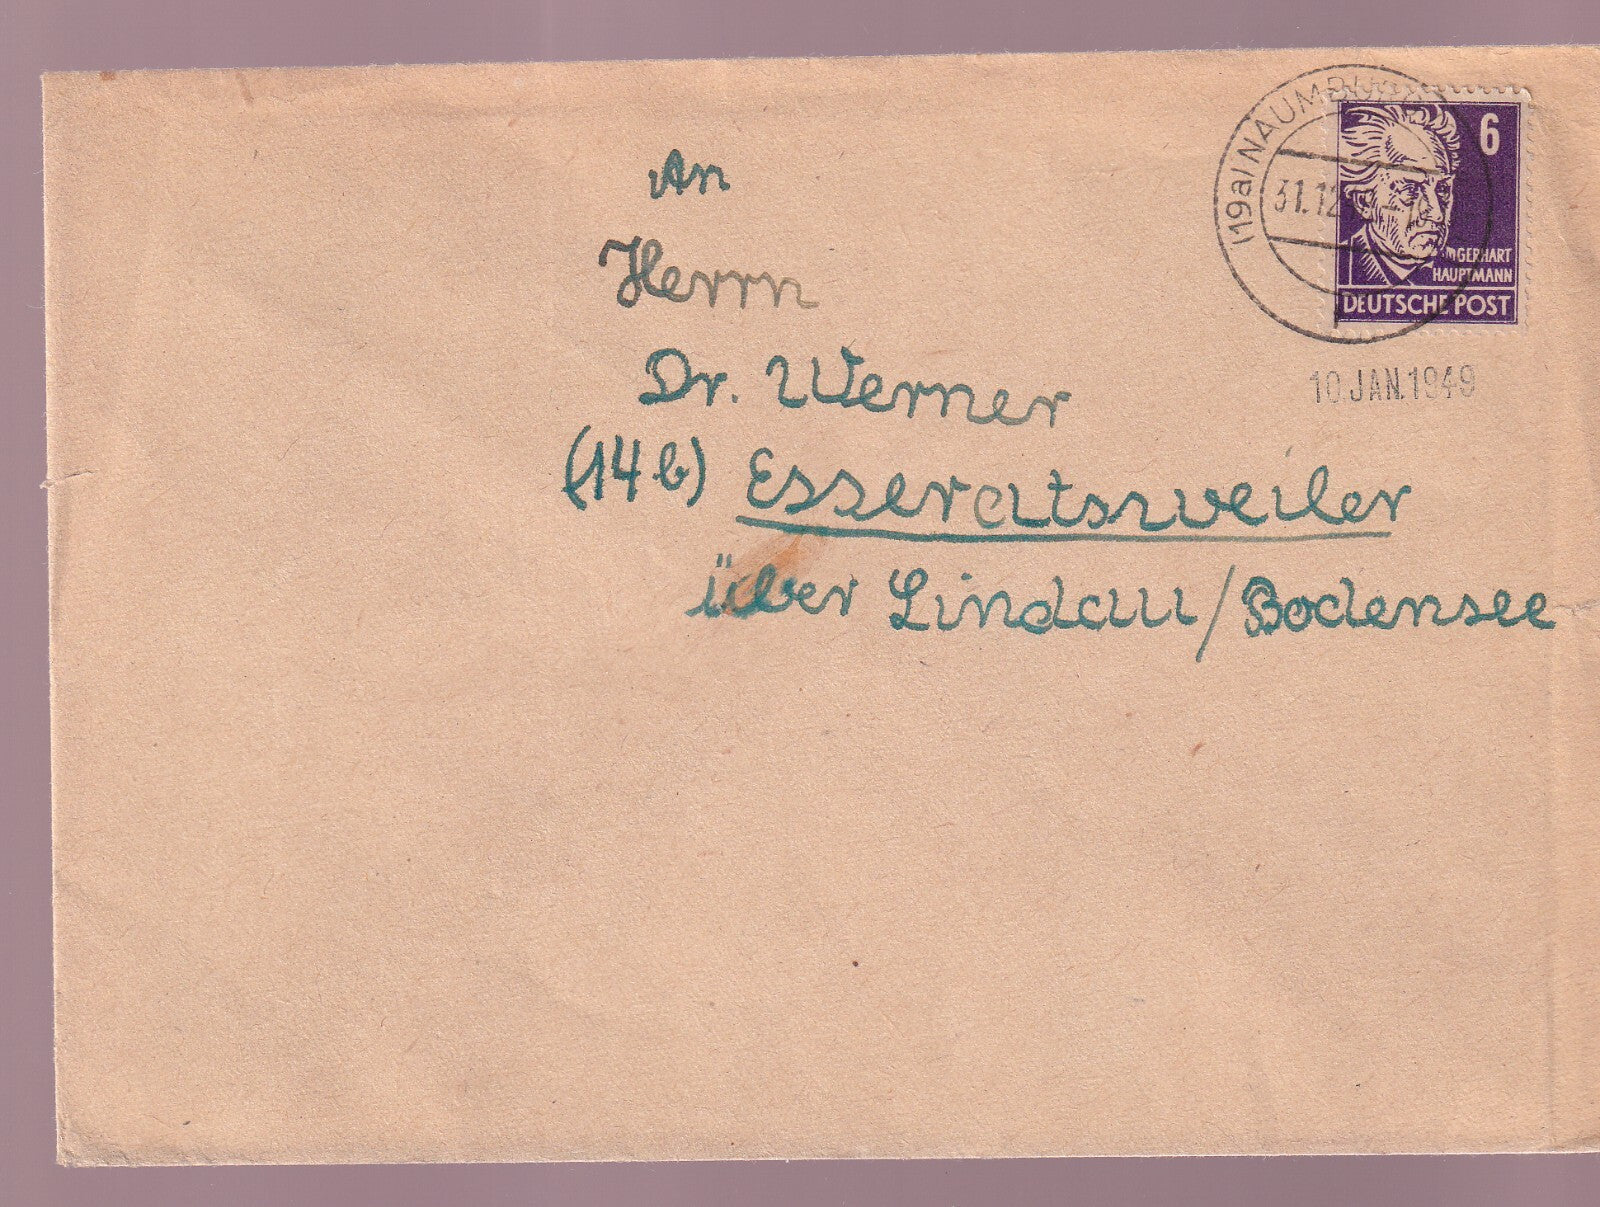 (19a) NAUMBURG
31.12
6
GERHART
HAUPTMANN
DEUTSCHE POST
10.JAN.1949
An
Herrn
Dr. Werner
(14b) Esseratsweiler
über Lindau/Bodensee